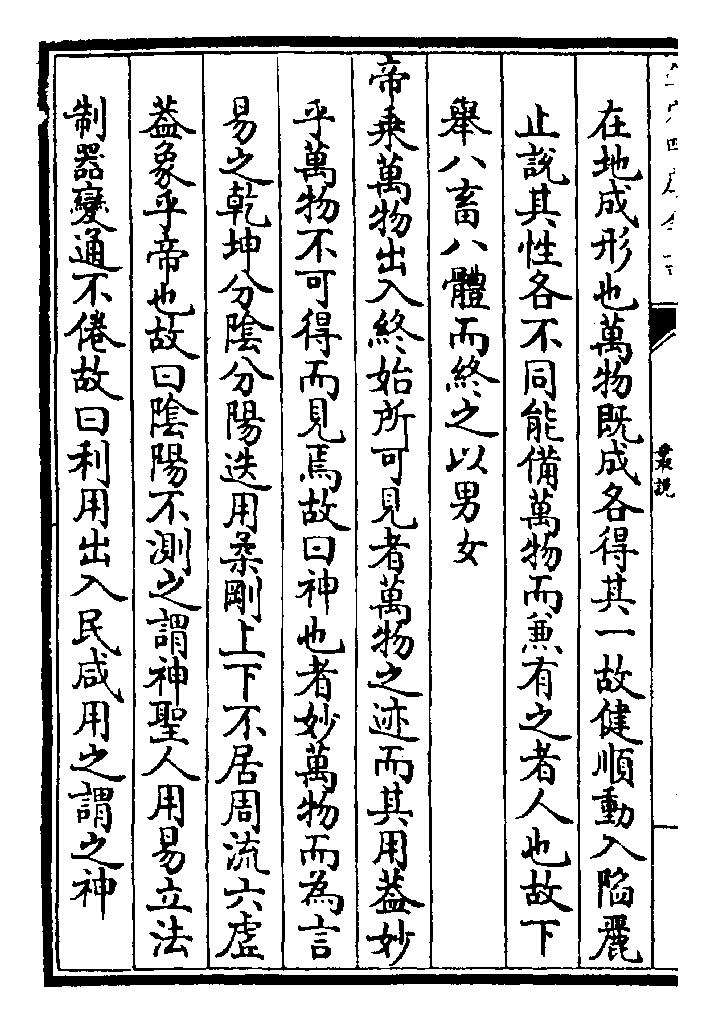 叢説
在地成形也萬物既成各得其一故健順動入陷麗
止說其性各不同能備萬物而兼有之者人也故下
舉八畜八體而終之以男女
帝乗萬物出入終始所可見者萬物之迹而其用葢妙
乎萬物不可得而見焉故曰神也者妙萬物而為言
易之乾坤分陰分陽迭用柔剛上下不居周流六虛
葢象乎帝也故曰陰陽不測之謂神聖人用易立法
制器變通不倦故曰利用出入民咸用之謂之神